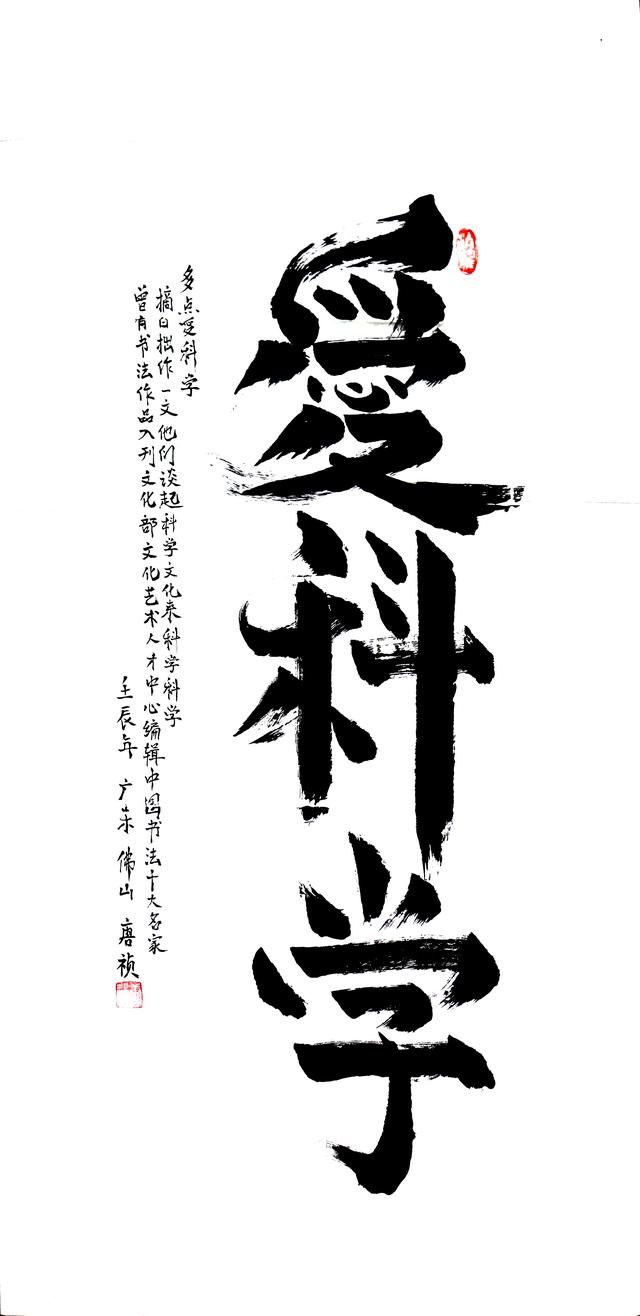 愛科学
多点爱科学
摘自拙作一文他们谈起科学文化来科学科学
曾有书法作品入刊文化部文化艺术人才中心编辑中国书法十大名家
壬辰年 广东 佛山 唐祯